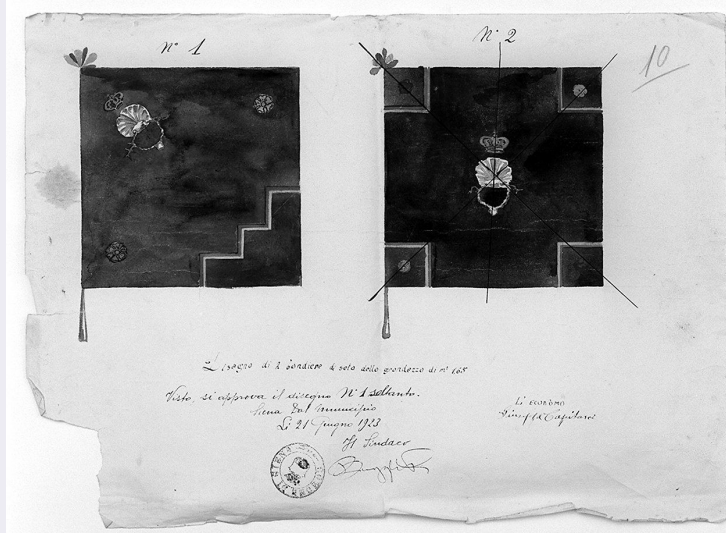 N° 1
N° 2
10
Disegno di 2 bandiere di seta della grandezza di mt 1.65
Visto, si approva il disegno N° 1 soltanto.
Siena dal Municipio
Li 21 Giugno 1923
Il Sindaco
Li Economo